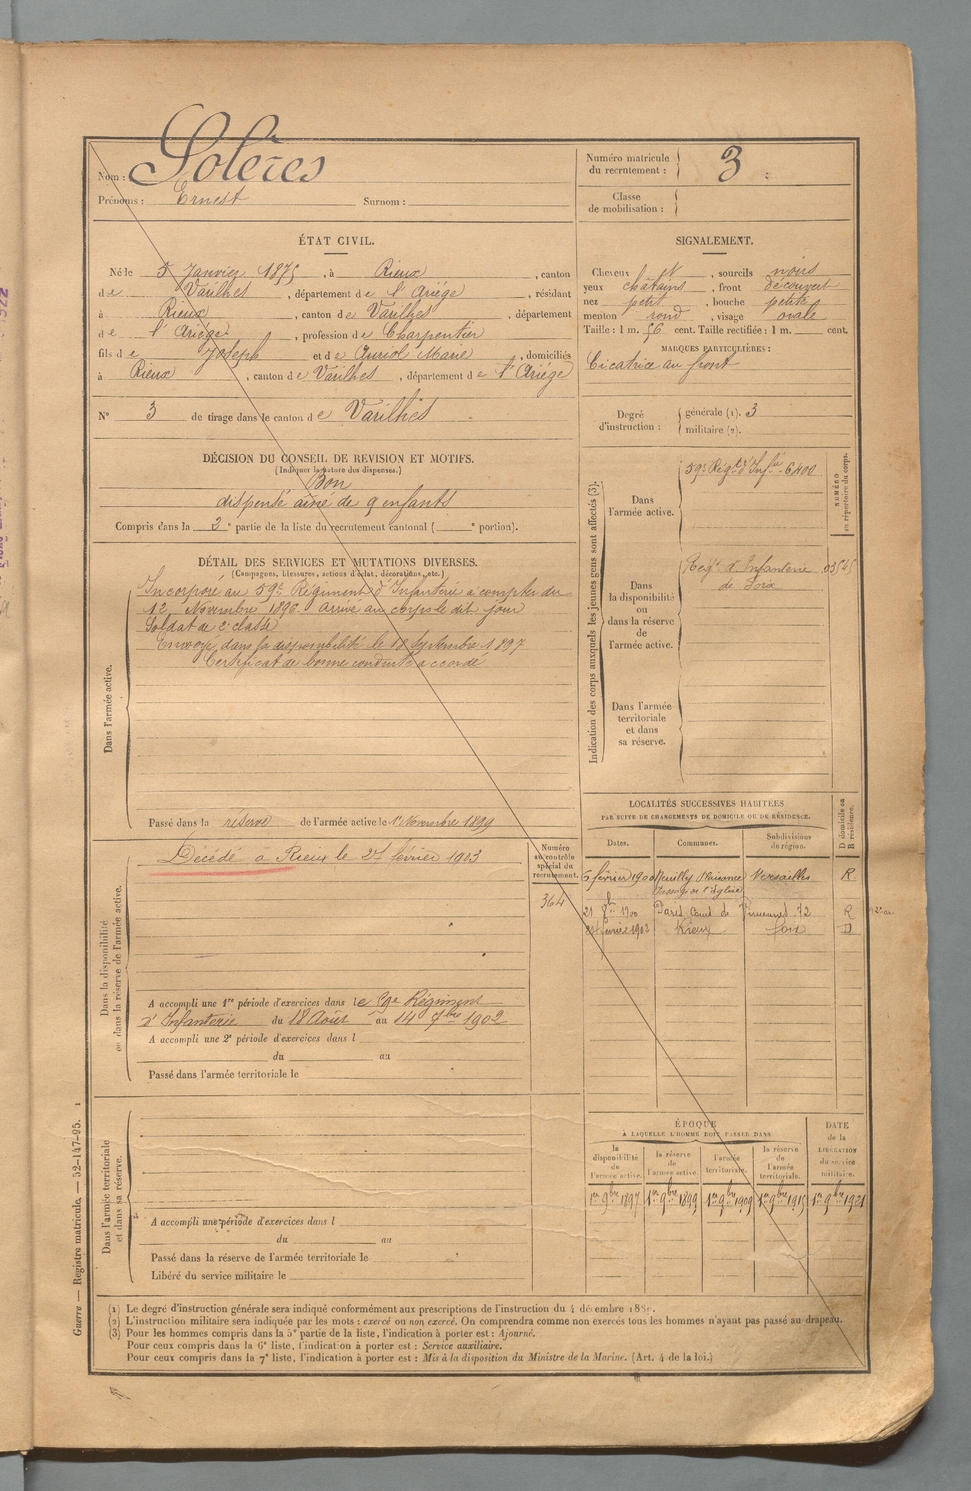 Nom : Solères
Prénoms : Ernest Surnom :
Numéro matricule du recrutement : 3
Classe de mobilisation :
ÉTAT CIVIL.
Né le 5 Janvier 1875, à Rieux, canton
de Varilhes, département de l'Ariège, résidant
à Rieux, canton de Varilhes, département
de l'Ariège, profession de Charpentier
fils de Joseph et de Auriol Marie, domiciliés
à Rieux, canton de Varilhes, département de l'Ariège
N° 3 de tirage dans le canton de Varilhes
SIGNALEMENT.
Cheveux et, sourcils noirs
yeux châtains, front découvert
nez petit, bouche petite
menton rond, visage ovale
Taille : 1 m. 56 cent. Taille rectifiée : 1 m. cent.
MARQUES PARTICULIÈRES :
Cicatrice au front
Degré d'instruction : générale (1). 3
militaire (2).
DÉCISION DU CONSEIL DE REVISION ET MOTIFS.
(Indiquer la nature des dispenses.)
Bon
dispensé ainé de 9 enfants
Compris dans la 2e partie de la liste du recrutement cantonal ( e portion).
DÉTAIL DES SERVICES ET MUTATIONS DIVERSES.
(Campagnes, blessures, actions d'éclat, décorations, etc.)
Dans l'armée active.
Incorporé au 59e Régiment d'Infanterie à compter du
12 Novembre 1896 arrivé au corps le dit jour
Soldat de 2e classe
Envoyé dans la disponibilité le 18 Septembre 1897
Certificat de bonne conduite accordé
Passé dans la réserve de l'armée active le 1er Novembre 1899
Indication des corps auxquels les jeunes gens sont affectés (3).
NUMÉRO au répertoire du corps.
Dans l'armée active.
59e Régt d'Infie 6400
Dans la disponibilité ou dans la réserve de l'armée active.
Regt d'Infanterie 03545
de Foix
Dans l'armée territoriale et dans sa réserve.
Dans la disponibilité ou dans la réserve de l'armée active.
Décédé à Rieux le 27 février 1903
Numéro au contrôle spécial du recrutement.
364
A accompli une 1re période d'exercices dans le 59e Régiment
d'Infanterie du 18 Août au 14 7bre 1902
A accompli une 2e période d'exercices dans l
du au
Passé dans l'armée territoriale le
LOCALITÉS SUCCESSIVES HABITÉES
PAR SUITE DE CHANGEMENTS DE DOMICILE OU DE RÉSIDENCE.
Dates. Communes. Subdivisions de région. D domicile ou R résidence.
6 février 1900 Neuilly Plaisance Versailles R
de l'Église
21 1900 Paris Cours de Vincennes 72 R
février 1902 Rieux Foix D
Dans l'armée territoriale et dans sa réserve.
A accompli une période d'exercices dans l
du au
Passé dans la réserve de l'armée territoriale le
Libéré du service militaire le
ÉPOQUE
À LAQUELLE L'HOMME DOIT PASSER DANS
la disponibilité de l'armée active. la réserve de l'armée active. l'armée territoriale. la réserve de l'armée territoriale. DATE de la LIBÉRATION du service militaire.
1er 9bre 1897 1er 9bre 1899 1er 9bre 1909 1er 9bre 1915 1er 9bre 1921
(1) Le degré d'instruction générale sera indiqué conformément aux prescriptions de l'instruction du 4 décembre 1889.
(2) L'instruction militaire sera indiquée par les mots : exercé ou non exercé. On comprendra comme non exercés tous les hommes n'ayant pas passé au drapeau.
(3) Pour les hommes compris dans la 5e partie de la liste, l'indication à porter est : Ajourné.
Pour ceux compris dans la 6e liste, l'indication à porter est : Service auxiliaire.
Pour ceux compris dans la 7e liste, l'indication à porter est : Mis à la disposition du Ministre de la Marine. (Art. 4 de la loi.)
Guerre — Registre matricule. — 52-147-95. 1